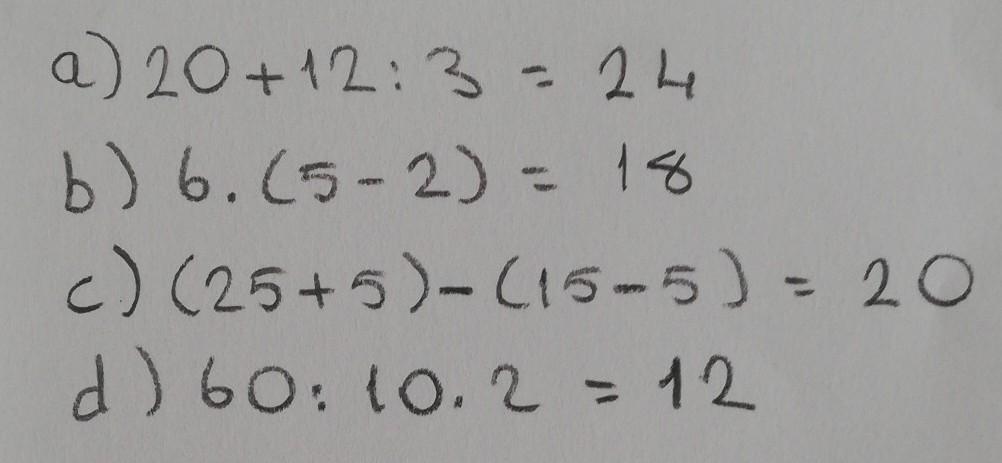 a) 20 + 12 : 3 = 24
b) 6 . (5 - 2) = 18
c) (25 + 5) - (15 - 5) = 20
d) 60 : 10 . 2 = 12